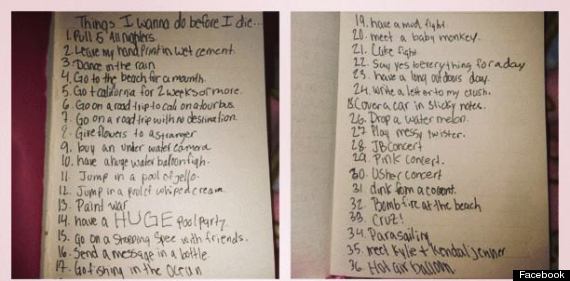 Things I wanna do before I die...
1. Pull 5 All nighters.
2. Leave my hand Print in wet cement.
3. Dance in the rain
4. Go to the beach for a mounth.
5. Go t california for 2 weeks or more.
6. Go on a road trip to cali on a tour bus.
7. Go on a road trip with no destination.
8. Give flowers to a stranger
9. buy an under water camera
10. have a huge water balloon figh.
11. Jump in a pool of jello.
12. Jump in a pool of whiped cream.
13. Paint war
14. have a HUGE pool party.
15. Go on a Shopping Spee with friends.
16. Send a message in a bottle.
17. Go fishing in the Ocean
19. have a mud fight.
20. meet a baby monkey.
21. Cake fight
22. Say yes to everything for a day
23. have a long outdoors day.
24. write a letter to my crush.
25. Cover a car in Sticky notes.
26. Drop a water melon.
27. Play messy twister.
28. JB Concert
29. Pink concert.
30. Usher concert
31. drink from a coconut.
32. Bomb fire at the beach
33. Cruz!
34. Parasailing
35. meet Kylie + Kendal Jenner
36. Hot air balloon
Facebook